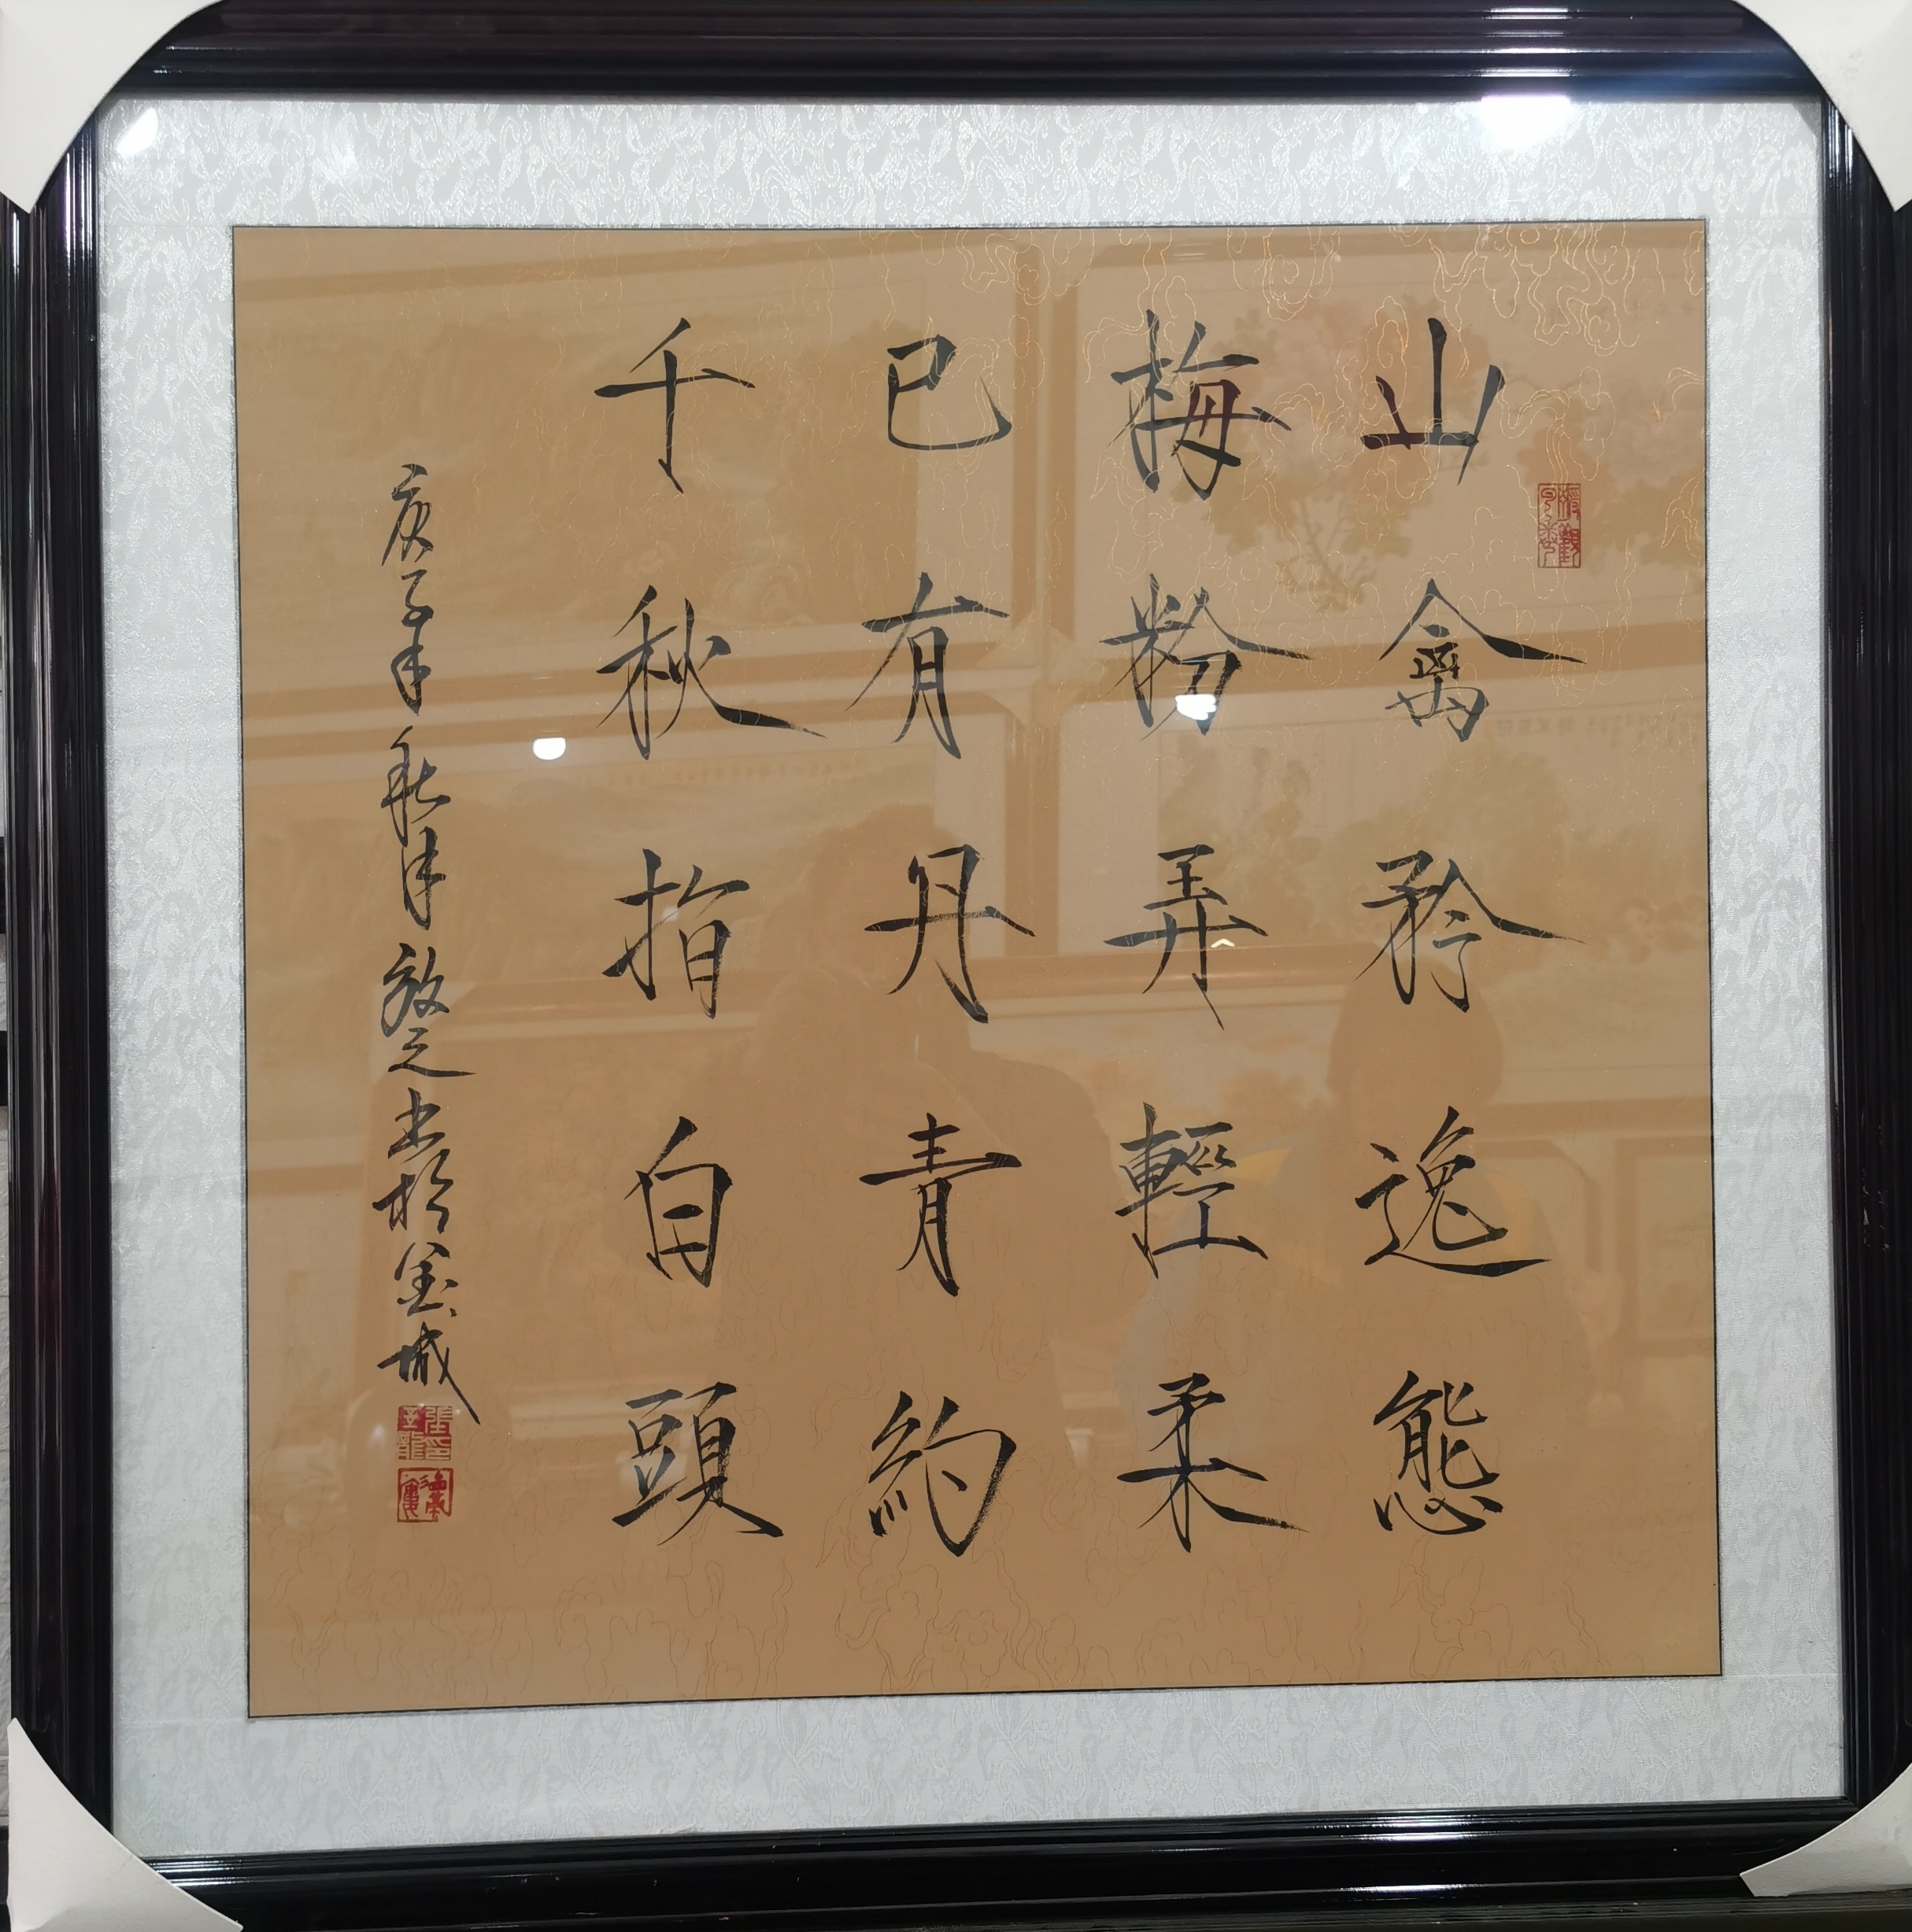 山禽矜逸態
梅粉弄輕柔
已有丹青約
千秋指白頭
庚子年秋月 敬之書於金城